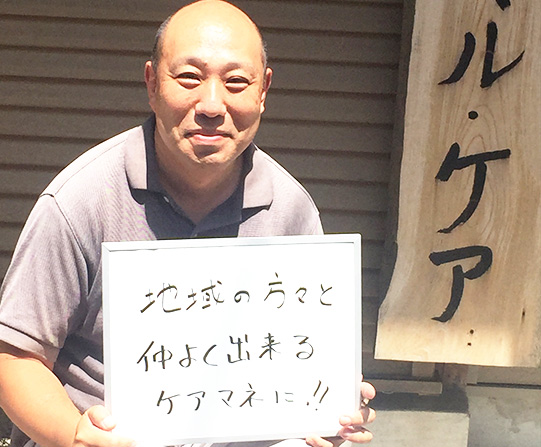 地域の方々と
仲よく出来る
ケアマネに!!
ル・ケア